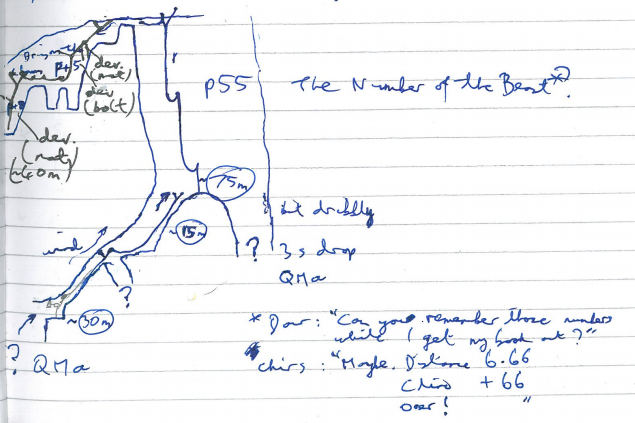 p55 The Number of the Beast*?
P+5
dev.
(nat)
dev
(bolt)
dev.
(nat)
~40m)
~75m
bit dribbly
~15m
wind
? 3s drop
QMa
?
~30m
? QMa
* Dour: "Can you remember those numbers
while I get my book out?"
chirs: "Maybe. Distance 6.66
Clino +66
Ooer! "